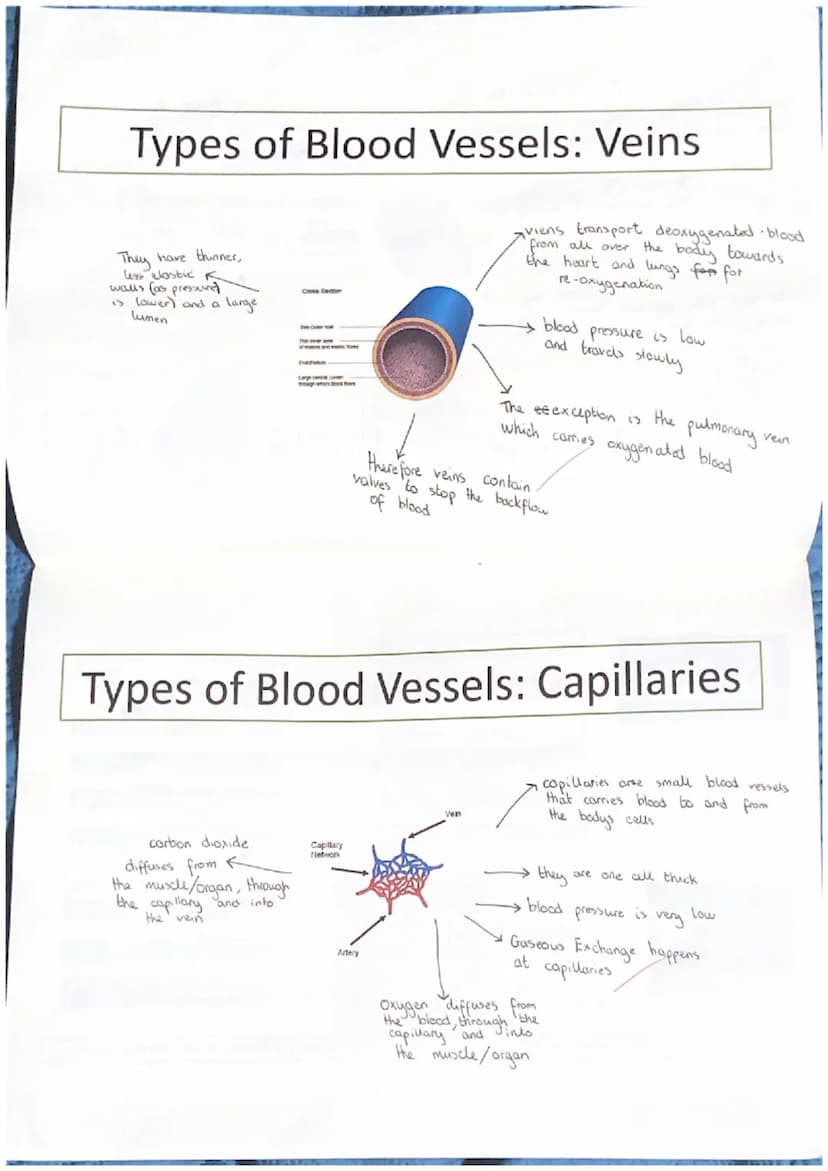 Types of Blood Vessels: Veins
They have thinner,
less elastic
walls (as pressure
is lower) and a large
lumen
Cross-Section
Thin Outer Wall
Thin inner layer
of muscle and elastic fibres
Endothelium
Large central Lumen
through which blood flows
viens transport deoxygenated blood
from all over the body towards
the heart and lungs for
re-oxygenation
blood pressure is low
and travels slowly
The exception is the pulmonary vein
which carries oxygenated blood
therefore veins contain
valves to stop the backflow
of blood
Types of Blood Vessels: Capillaries
carbon dioxide
diffuses from
the muscle/organ, through
the capillary and into
the vein
Capillary
Network
Vein
Artery
capillaries are small blood vessels
that carries blood to and from
the bodys cells
they are one cell thick
blood pressure is very low
Gaseous Exchange happens
at capillaries
Oxygen diffuses from
the blood, through the
capillary and into
the muscle/organ